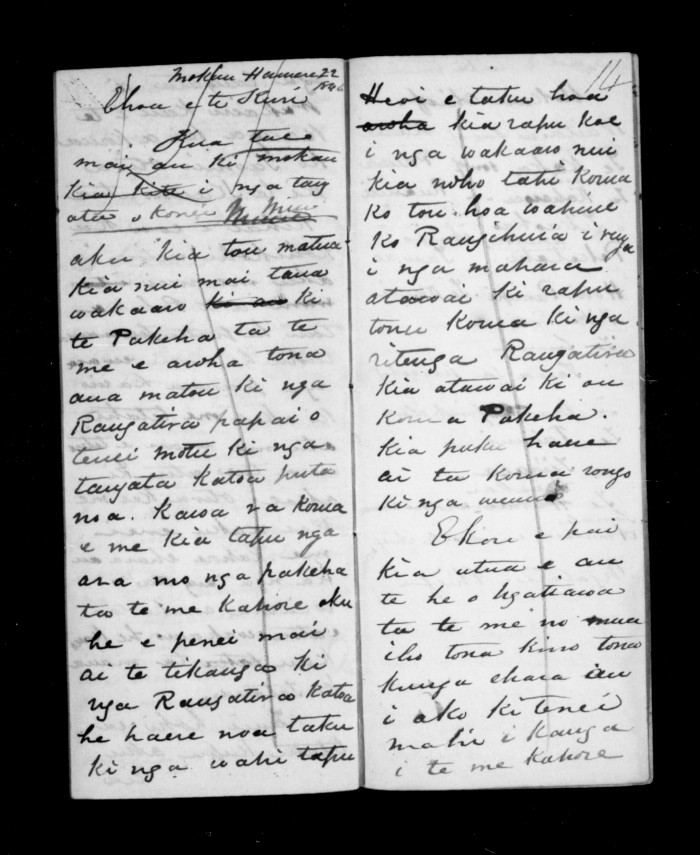 Mokau Hanuere 22
1846
Ehoa e te Kuri
Kua tae
mai au ki mokau
kia kite i nga tang
ata o konei Miri
aku kia tou matua
kia nui mai tana
wakaaro ki au ki
te Pakeha ta te
me e aroha tona
ana matou ki nga
Rangatira papai o
tenei motu ki nga
tangata katoa puta
noa. Kaua ra koma
e me kia tapu nga
ara mo nga pakeha
ta te me kahore oku
he e penei mai
ai te tikanga ki
nga Rangatira katoa
he haere noa taku
ki nga wahi tapu
14
Heoi e taku hoa
aroha kia rapu koe
i nga wakaaro nui
kia noho tahi koma
ko tou hoa wahine
ko Rangihuia i runga
i nga mahara
atawai ki rapu
tonu koma ki nga
ritenga Rangatira
kia atawai ki au
koma Pakeha.
kia puku haere
ai ta koma rongo
ki nga
Ekore e pai
kia utua e au
te he o Ngatiawa
ta te me no mua
iho tona kino tona
kunga ehara i au
i ako ki tenei
mahi i kanga
i te me kahore